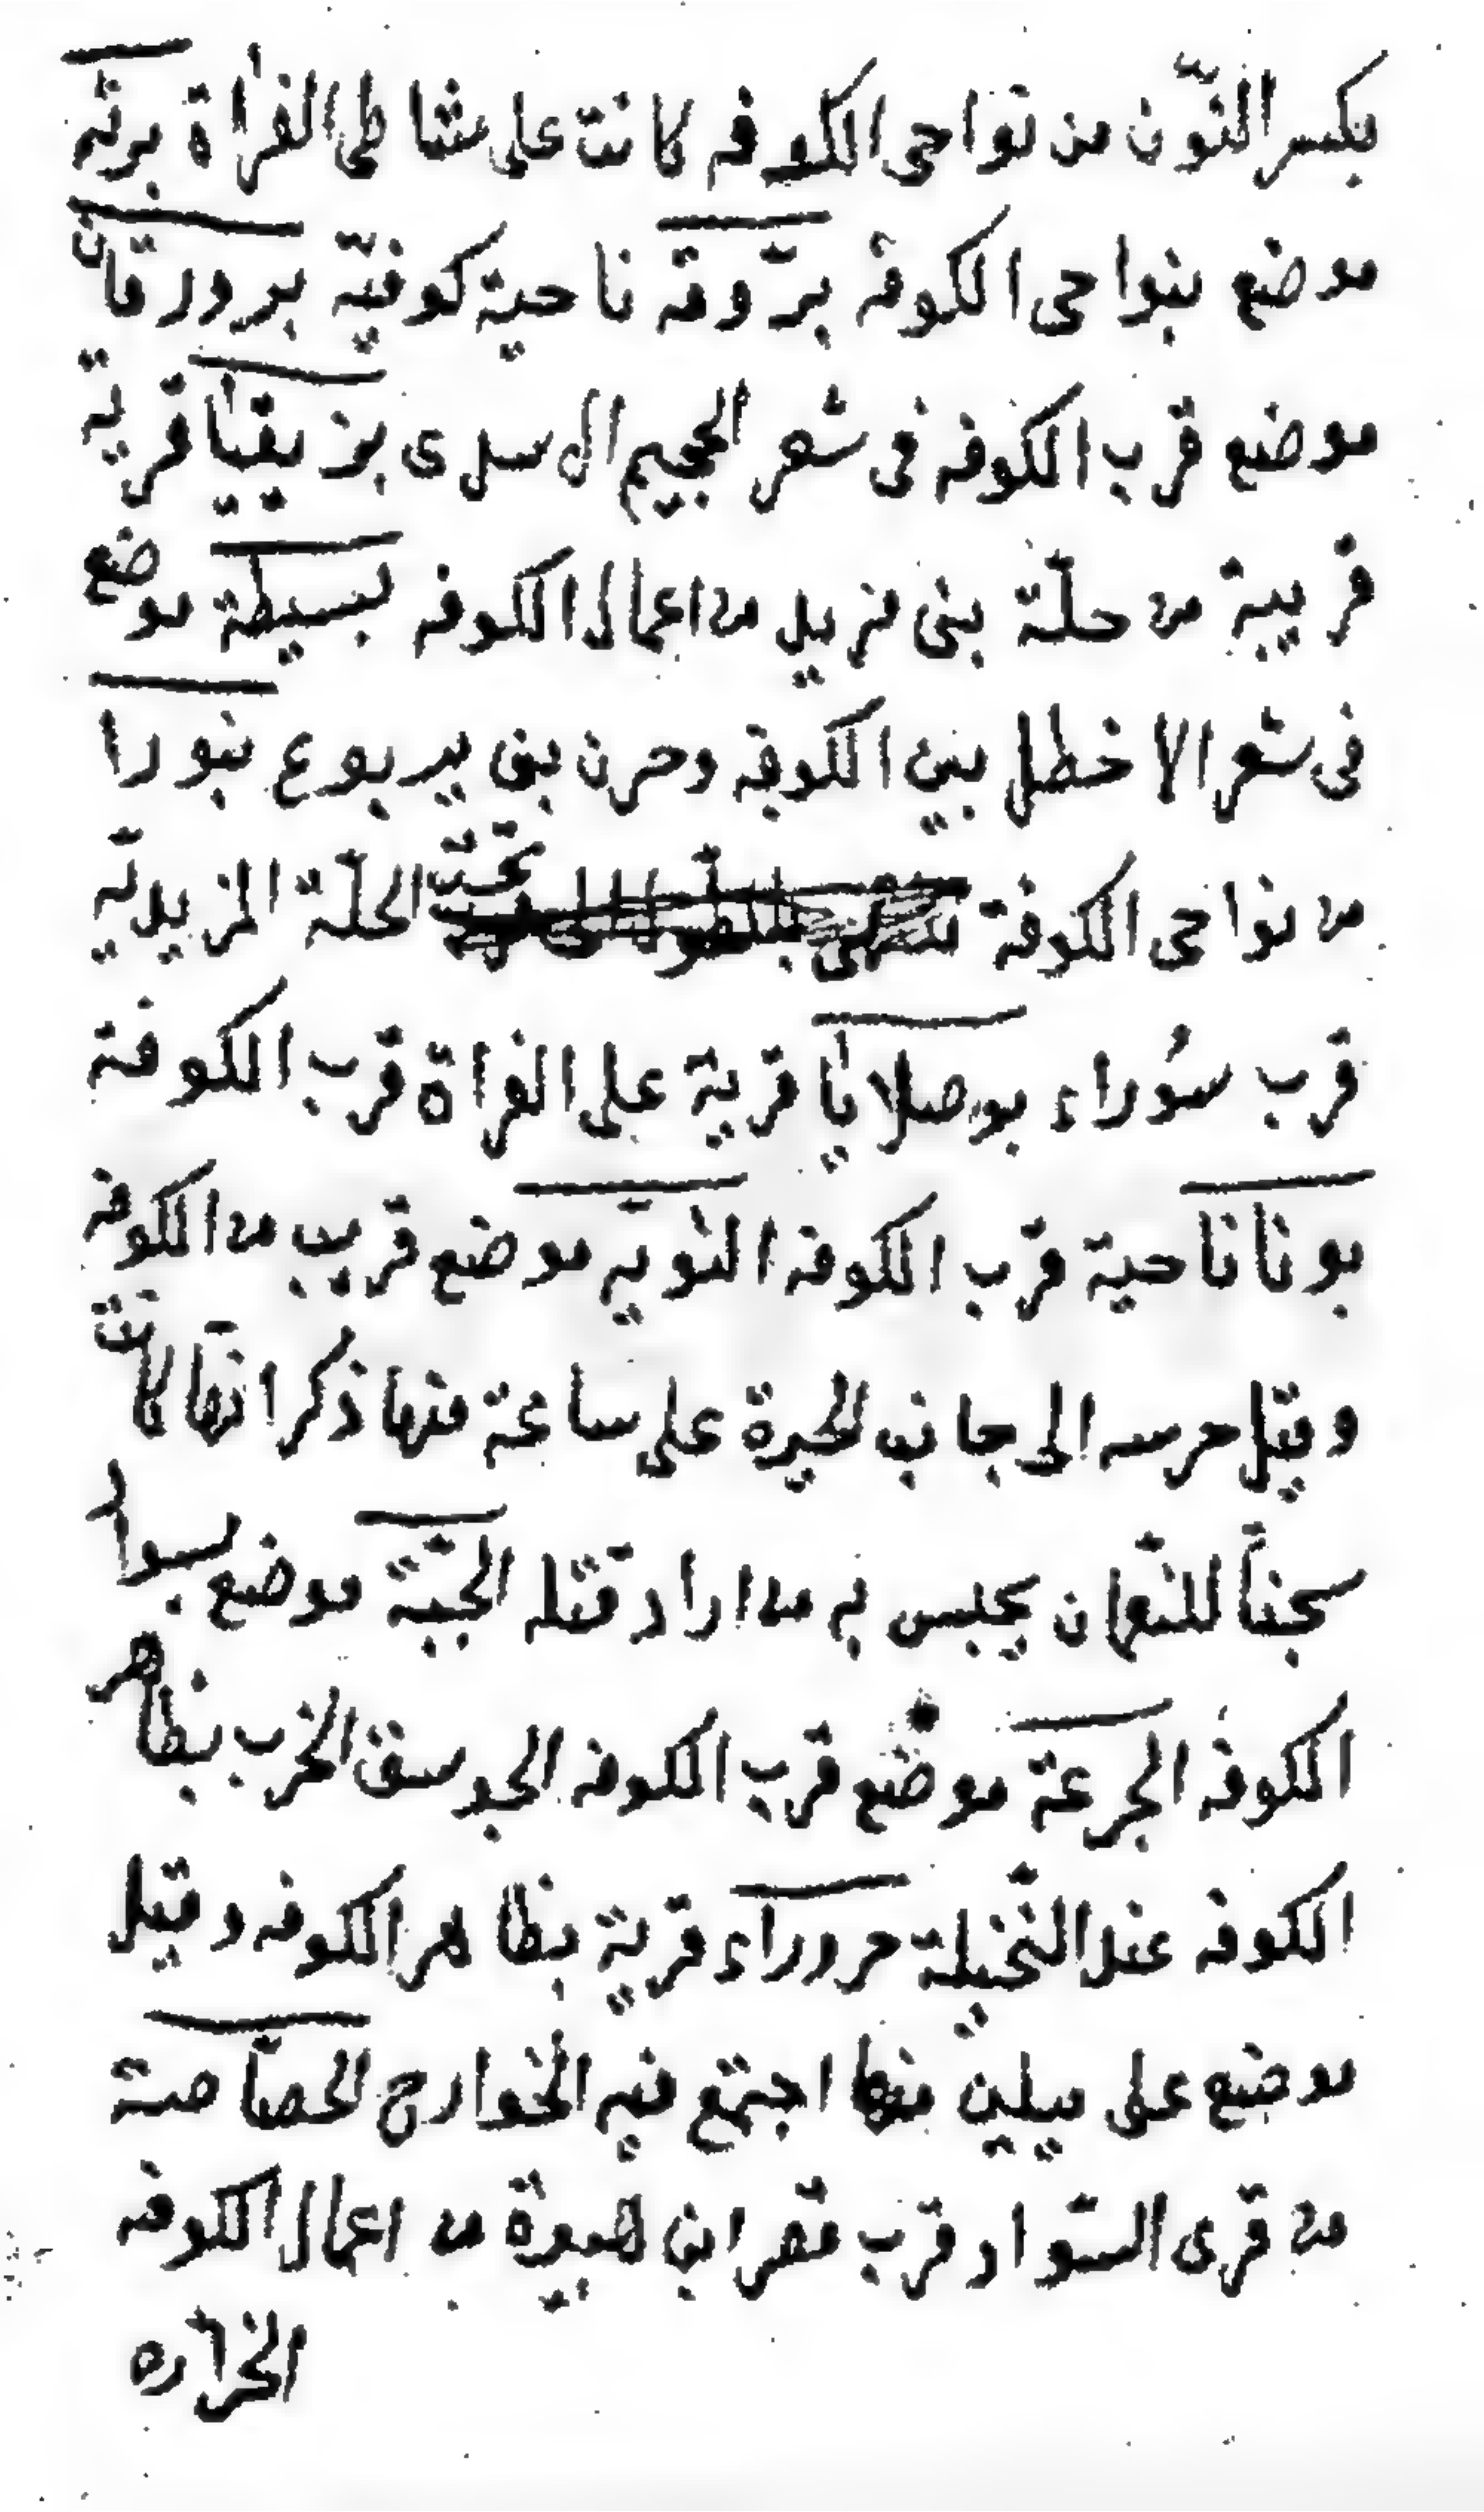 بكسر النّون من نواحى الكوفه كانت على شاطى الفراة برثه
موضع بنواحى الكوفه برّوقه ناحية كوفيّه برورقان
موضع قرب الكوفه فى شعر الجحيم ال سدى بزيقيا قرية
قريبة من حلّة بنى مزيد من اعمال الكوفه بسيطة موضع
فى شعر الاخطل بين الكوفه وحزن بنى يربوع بنورا
من نواحى الكوفة تحت الحلّة المزيديّة
قرب سُوراء بوصلايا قرية على الفراة قرب الكوفة
بونا ناحية قرب الكوفه الثويّه موضع قريب من الكوفه
وقيل خربه الى جانب الحيرة على ساعة منها ذكر انّها كانت
سجناً للنّعمان يحبس به من اراد قتله الجبّة موضع بسواد
الكوفه الجرعة موضع قرب الكوفه الجوسق الخرب بظاهر
الكوفه عند النّخيلة حروراء قرية بظاهر الكوفه وقيل
موضع على ميلين منها اجتمع فيه الخوارج الحصّاصة
من قرى السّواد قرب قصر ابن هبيرة من اعمال الكوفه
الخرّاره